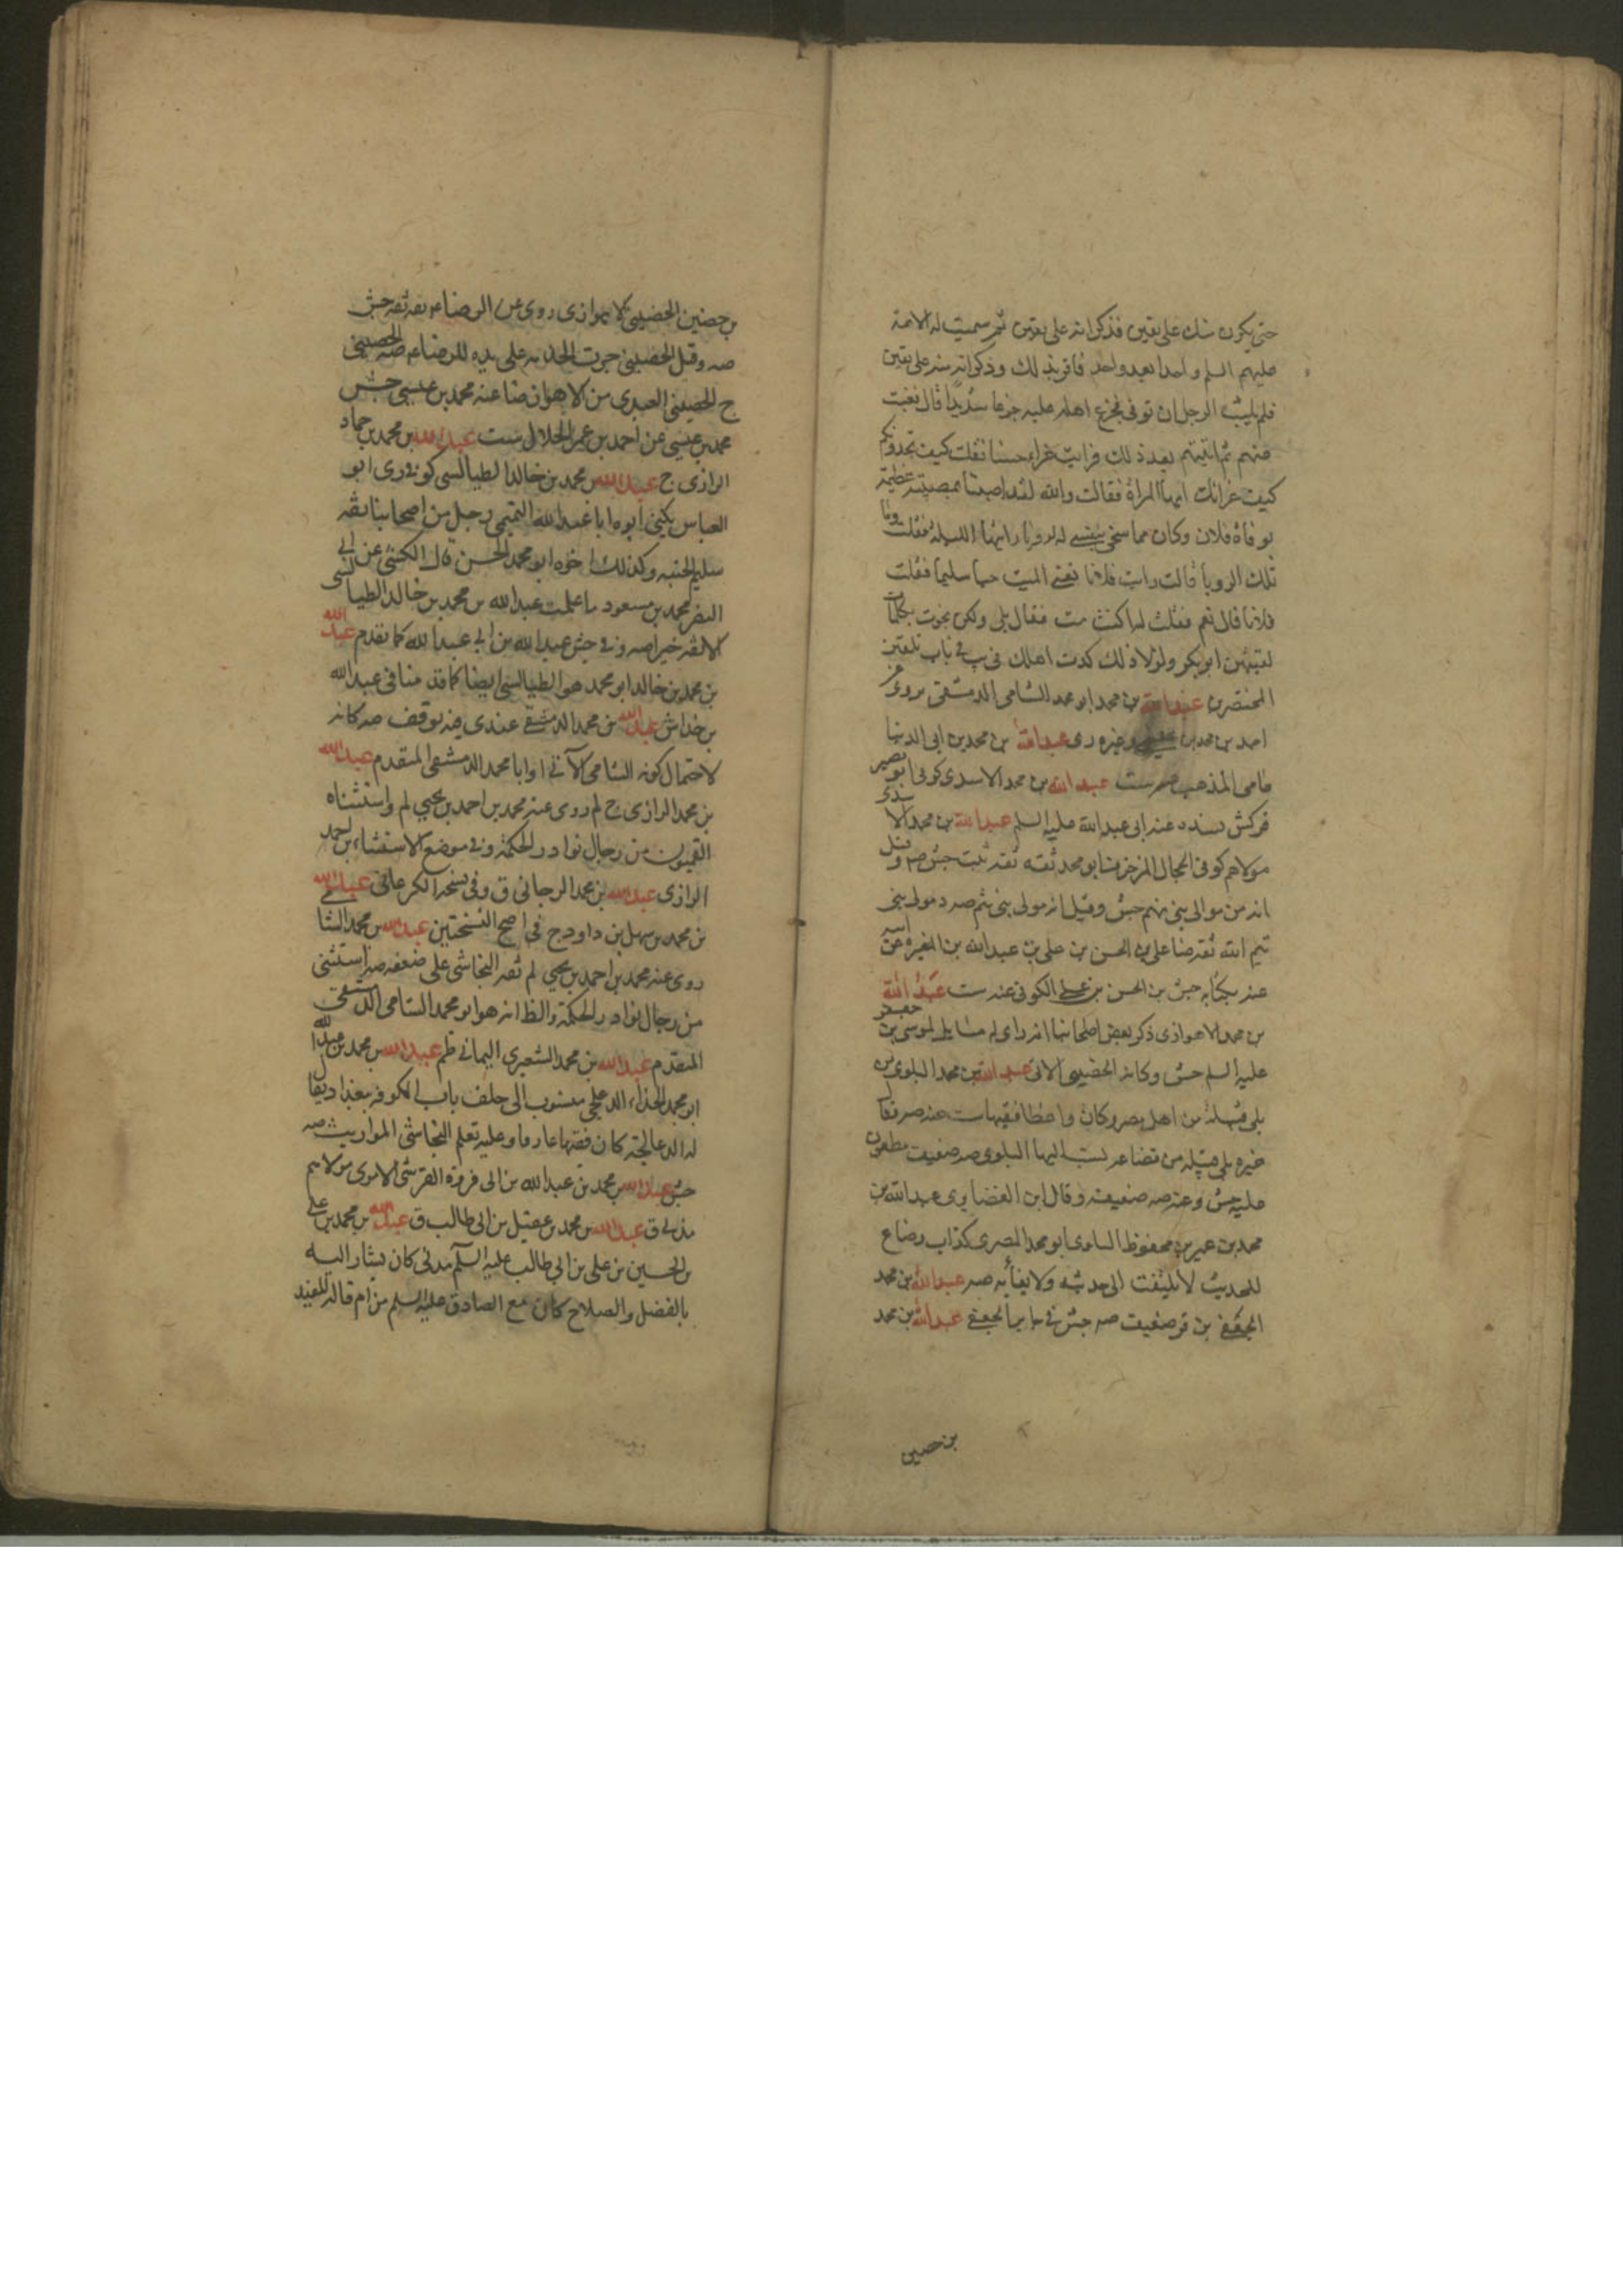 حتى يكون منك على يقين فذكر انه على يقين ثم سميت له الائمة
عليهم السلم واحدا بعد واحد فاقر بذلك وذكر انه منه على يقين
فلم يلبث الرجل ان توفى فجزع اهله عليه جزعا شديدا قال فغبت
عنهم ثم اتيتهم بعد ذلك فرايت عزاء حسنا فقلت كيف تجدونكم
كيف عزائك ايتها المراة فقالت والله لقد اصبنا بمصيبة عظيمة
بوفاة فلان وكان مما سخى بنفسى لرؤيا رايتها الليلة فقلت وما
تلك الرويا قالت رايت فلانا تعنى الميت حيا سليما فقلت
فلانا قال نعم فقلت له اكنت مت فقال بلى ولكن نجوت بكلمات
لقنيهن ابو بكر ولولا ذلك كدت اهلك فى يب فى باب تلقين
المحتضرين عبد الله بن محمد ابو محمد الشامى الدمشقى يروى عن
احمد بن محمد بن عيسى وغيره رى عبد الله بن محمد بن ابى الدنيا
عامى المذهب صه ست عبد الله بن محمد الاسدى كوفى ابو بصير
قر كش بسنده عنه ابى عبد الله عليه السلم عبد الله بن محمد الاسدى
مولاهم كوفى الحجال المزخرف ابو محمد ثقة ثقة ثبت جش صه وقيل
انه من موالى بنى تيم جش وقيل انه مولى بنى تيم صه د مولى بنى
تيم الله ثقة ضا على بن الحسن بن على بن عبد الله بن المغيرة عن ابيه
عنه بكتابه جش بن الحسن بن على الكوفى عنه ست عبد الله
بن محمد الاهوازى ذكر بعض اصحابنا انه راى له مسايل لموسى بن جعفر
عليه السلم جش وكانه الحضينى الاتى عبد الله بن محمد البلوى من
بلى قبيلة من اهل مصر وكان واعظا فقيها ست عنه صه نقل
غيره بلى قبيلة من قضاعه نسب اليها البلوى صه ضعيف مطعون
عليه جش وعنه صه ضعيف وقال ابن الغضايرى عبد الله بن
محمد بن عمير بن محفوظ البلوى ابو محمد المصرى كذاب وضاع
للحديث لا يلتفت الى حديثه ولا يعبأ به صه عبد الله بن محمد
الجعفى ين قر ضعيف صه جش فى جابر الجعفى عبد الله بن محمد
بن حصين
بن حصين الحضينى الاهوازى روى عن الرضا ع ثقة ثقة جش
صه وقيل الحضينى جرت الخدمة على يده للرضا ع صه الحصينى
ج الحضينى العبدى من الاهواز ضا عنه محمد بن عيسى جش
محمد بن عيسى عن احمد بن عمر الحلال ست عبد الله بن محمد بن حماد
الرازى ج عبد الله بن محمد بن خالد الطيالسى كوفى رى ابو
العباس يكنى ابوه ابا عبد الله التميمى رجل من اصحابنا ثقة
سليم الجنبه وكذلك اخوه ابو محمد الحسن قال الكشى عن ابى
النضر محمد بن مسعود ما علمت عبد الله بن محمد بن خالد الطيالسى
الا ثقة خيرا صه وفى جش عبد الله بن ابى عبد الله كما تقدم عبد الله
بن محمد بن خالد ابو محمد هو الطيالسى ايضا كما قدمنا فى عبد الله
بن خداش عبد الله بن محمد الدمشقى عندى فيه توقف صه كانه
لاحتمال كونه الشامى الآتى او ابا محمد الدمشقى المتقدم عبد الله
بن محمد الرازى ج لم روى عنه محمد بن احمد بن يحيى لم واستثناه
القميون من رجال نوادر الحكمة وفى موضع الاستثناء بن احمد
الرازى عبد الله بن محمد الرجانى ق وفى نسخة الكرمانى عبد الله
بن محمد بن سهل بن داود ج فى اصح النسختين عبد الله بن محمد الشامى
روى عنه محمد بن احمد بن يحيى لم ثقة النجاشى على ضعفه صه استثنى
من رجال نوادر الحكمة والظ انه هو ابو محمد الشامى الدمشقى
المتقدم عبد الله بن محمد الشعيرى اليمانى ظم عبد الله بن محمد بن عبد الله
ابو محمد الحذاء الدعلجى منسوب الى خلف باب الكوفه ببغداد يقال
له الدعالجة كان فقيها عارفا وعليه تعلم النجاشى المواريث صه
جش عبد الله بن محمد بن عبد الله بن ابى فروة القرشى الاموى مولاهم
مدنى ق عبد الله بن محمد بن عقيل بن ابى طالب ق عبد الله بن محمد بن على
بن الحسين بن على بن ابى طالب عليه السلم مدنى كان يشار اليه
بالفضل والصلاح كان مع الصادق عليه السلم من ام قاله المفيد